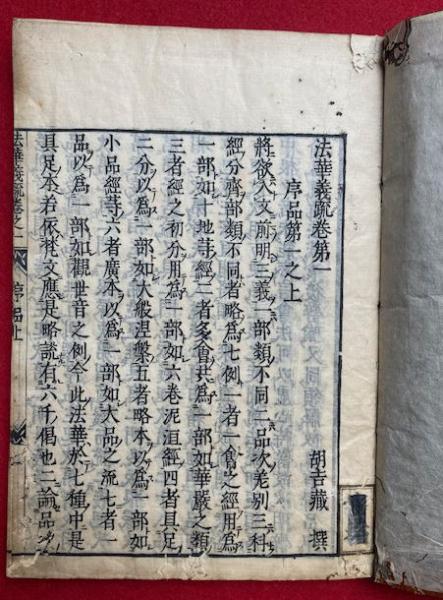 法華義疏卷第一
序品第一之上
胡吉藏 撰
將欲入文前明三義一部類不同二品次差別三科
經分齊部類不同者略爲七例一者一會之經用爲
一部如十地等經二者多會共爲一部如華嚴之類
三者經之初分用爲一部如六卷泥洹經四者具足
二分以爲一部如大般涅槃五者略本以爲一部如
小品經等六者廣本以爲一部如大品之流七者一
品以爲一部如觀世音之例今此法華於七種中是
具足本若依梵文應是略說有六千偈也二論品次
法華義疏卷之一 序品上